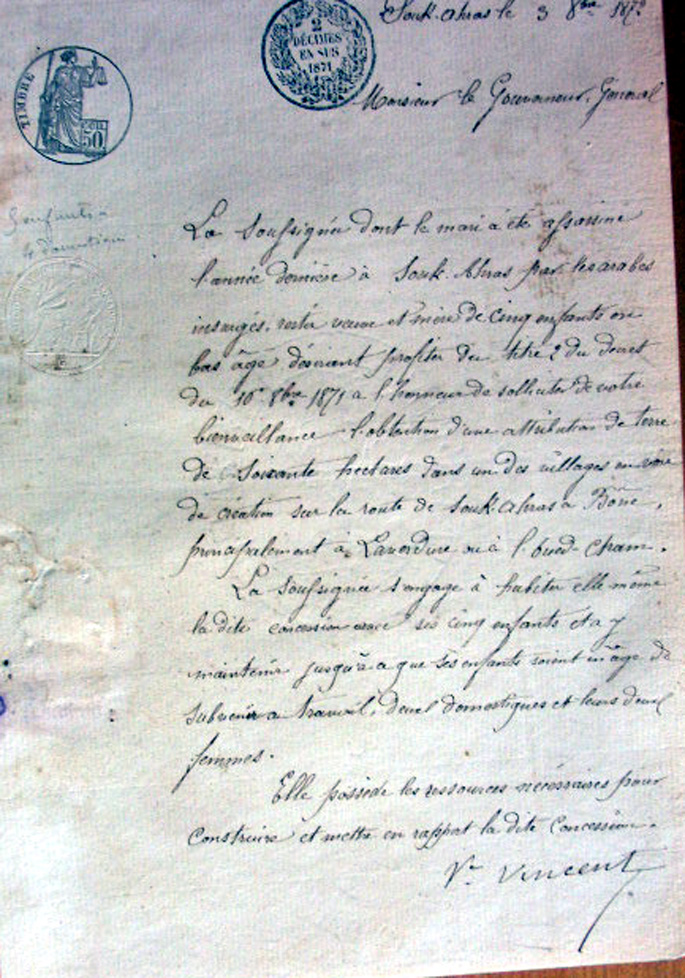 Souk-ahras le 3 8bre 187
2
DÉCIMES
EN SUS
1871
TIMBRE
50
Monsieur le Gouverneur Général
5 enfants
4 domestiques
La Soussignée dont le mari a été assassiné
l'année dernière à Souk-Ahras par les arabes
insurgés, restée veuve et mère de cinq enfants en
bas âge désirant profiter du titre 2 du decret
du 16 8bre 1871 a l'honneur de solliciter de votre
bienveillance l'obtention d'une attribution de terre
de Soixante hectares dans un des villages en voie
de création sur la route de Souk-ahras a Bône,
principalement à Laverdure ou à l'oued-Cham.
La Soussignée s'engage à habiter elle même
la dite concession avec ses cinq enfants et a y
maintenir jusqu'à a que ses enfants soient en âge de
subvenir a travail, deux domestiques et leurs deux
femmes.
Elle possède les ressources nécessaires pour
construire et mettre en rapport la dite concession.
Ve Vincent